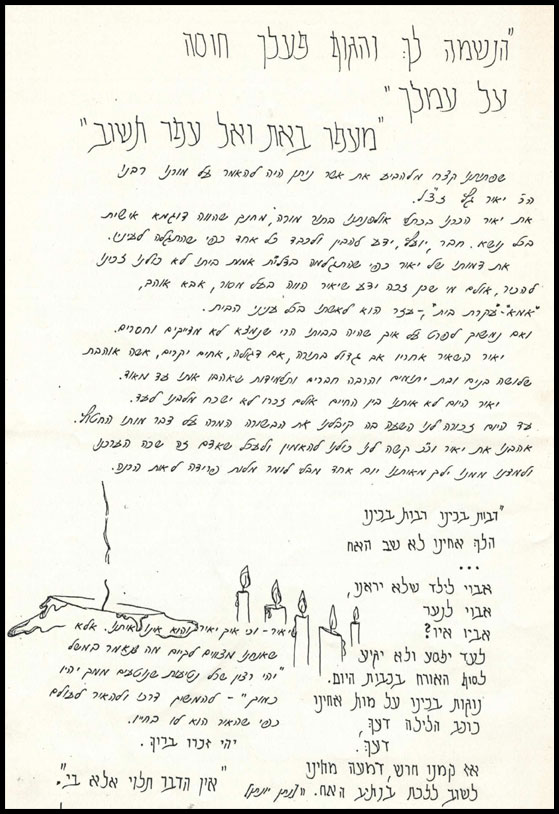 "הנשמה לך והגוף פעלך חוסה
על עמלך"
"מעפר באת ואל עפר תשוב"
שפתינו קצרו מלהביע את אשר ניתן היה להאמר על מורנו רבנו
הר' יאיר ז"ל.
את יאיר הכרנו בכתלי אולפנתנו בתור מורה, מחנך שהווה דוגמא אישית
בכל נושא. חבר, יועץ, ידע להבין ולכבד כל אחד כפי שהתגלה לעינינו.
את דמותו של יאיר כפי שהתגלמה באמת ביתו לא כולנו זכינו
להכיר, אולם מי שכן זכה ידע שיאיר הווה בעל מסור, אבא אוהב,
"אמא"-"עקרת בית", -עזר הוא לאשתו בכל עניני הבית.
ואם נמשיך לפרט על איך שהיה בביתו הרי שנמצא לא מדייקים וחסרים.
יאיר השאיר אחריו אם גדולה בתורה, אם דגולה, אחים יקרים, אשה אוהבת
שלושה בנים ובת יתומים והרבה חברים ותלמידות שאהבו אותו עד מאוד.
יאיר היום לא איתנו בין החיים אולם זכרו לא ישכח מלבנו לעד.
עד היום זכורה לנו השעה בה קיבלנו את הבשורה המרה על דבר מותו החטוף.
אהבנו את יאיר וכ"כ קשה לנו כולנו להאמין ולעכל שאדם זה שכה הערכנו
ולמענו ממנו ילך מאיתנו יום אחד מבלי לומר מלות פרידה לאות הרנה.
"רבות בכינו רבות בכינו
הלך אחינו לא שב האח
...
אבוי לילד שלא יראנו,
אבוי לנער
אביו איו?
לעד יפסע ולא יקיע
לסוף האורח בכבות היום.
נוגות בכינו על מות אחינו
כוכב הלילה דעך,
דעך.
אז קמנו חרש, דמעה מחינו
לשוב ללכת בנתיב האח. "נתן יונתן
יאיר - וכי איך יאיר והוא איננו איתנו. אלא
שאנחנו מצווים לקיים מה שנאמר במשל
"יהי רצון שכל נטיעות שנוטעים ממך יהיו
כמוך" - להמשיך דרכו ולהאיר לעולם
כפי שהאיר הוא לו בחייו.
יהי זכרו ברוך.
"אין הדבר תלוי אלא בי".